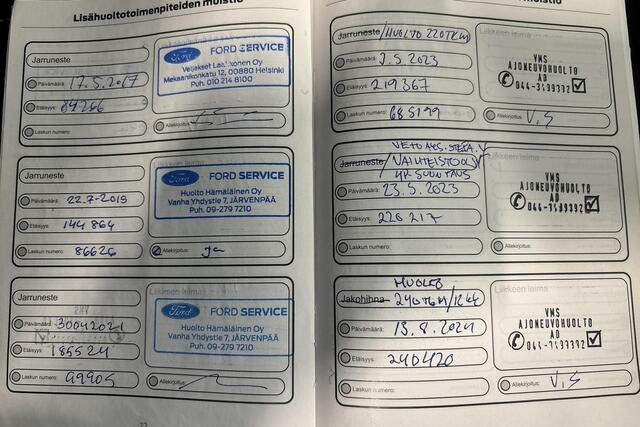 Lisähuoltotoimenpiteiden muistio
Jarruneste
Päivämäärä: 17.5.2017
Etäisyys: 84266
Laskun numero:
Ford FORD SERVICE
Mekaanikonkatu 12, 00880 Helsinki
Puh. 010 214 8100
Allekirjoitus:
Jarruneste
Päivämäärä: 22.7-2019
Etäisyys: 144 864
Laskun numero: 86626
Ford FORD SERVICE
Huolto Hämäläinen Oy
Vanha Yhdystie 7, JÄRVENPÄÄ
Puh. 09-279 7210
Allekirjoitus:
Jarruneste
Päivämäärä: 30042021
Etäisyys: 185524
Laskun numero: 99905
Liikkeen leima
Ford FORD SERVICE
Huolto Hämäläinen Oy
Vanha Yhdystie 7, JÄRVENPÄÄ
Puh. 09-279 7210
Allekirjoitus:
23
muistio
Jarruneste /HUOLTO 220TKM
Päivämäärä: 2.5.2023
Etäisyys: 219367
Laskun numero: 685199
Liikkeen leima
VMS
AJONEUVOHUOLTO
AD
Allekirjoitus: V,S
Jarruneste
Päivämäärä: 23.5.2023
Etäisyys: 220 217
Laskun numero:
Liikkeen leima
VMS
AJONEUVOHUOLTO
AD
Allekirjoitus:
HUOLTO
Jakohihna 240TKM/12KK
Päivämäärä: 13.8.2024
Etäisyys: 240420
Laskun numero:
Liikkeen leima
VMS
AJONEUVOHUOLTO
AD
Allekirjoitus: V,S